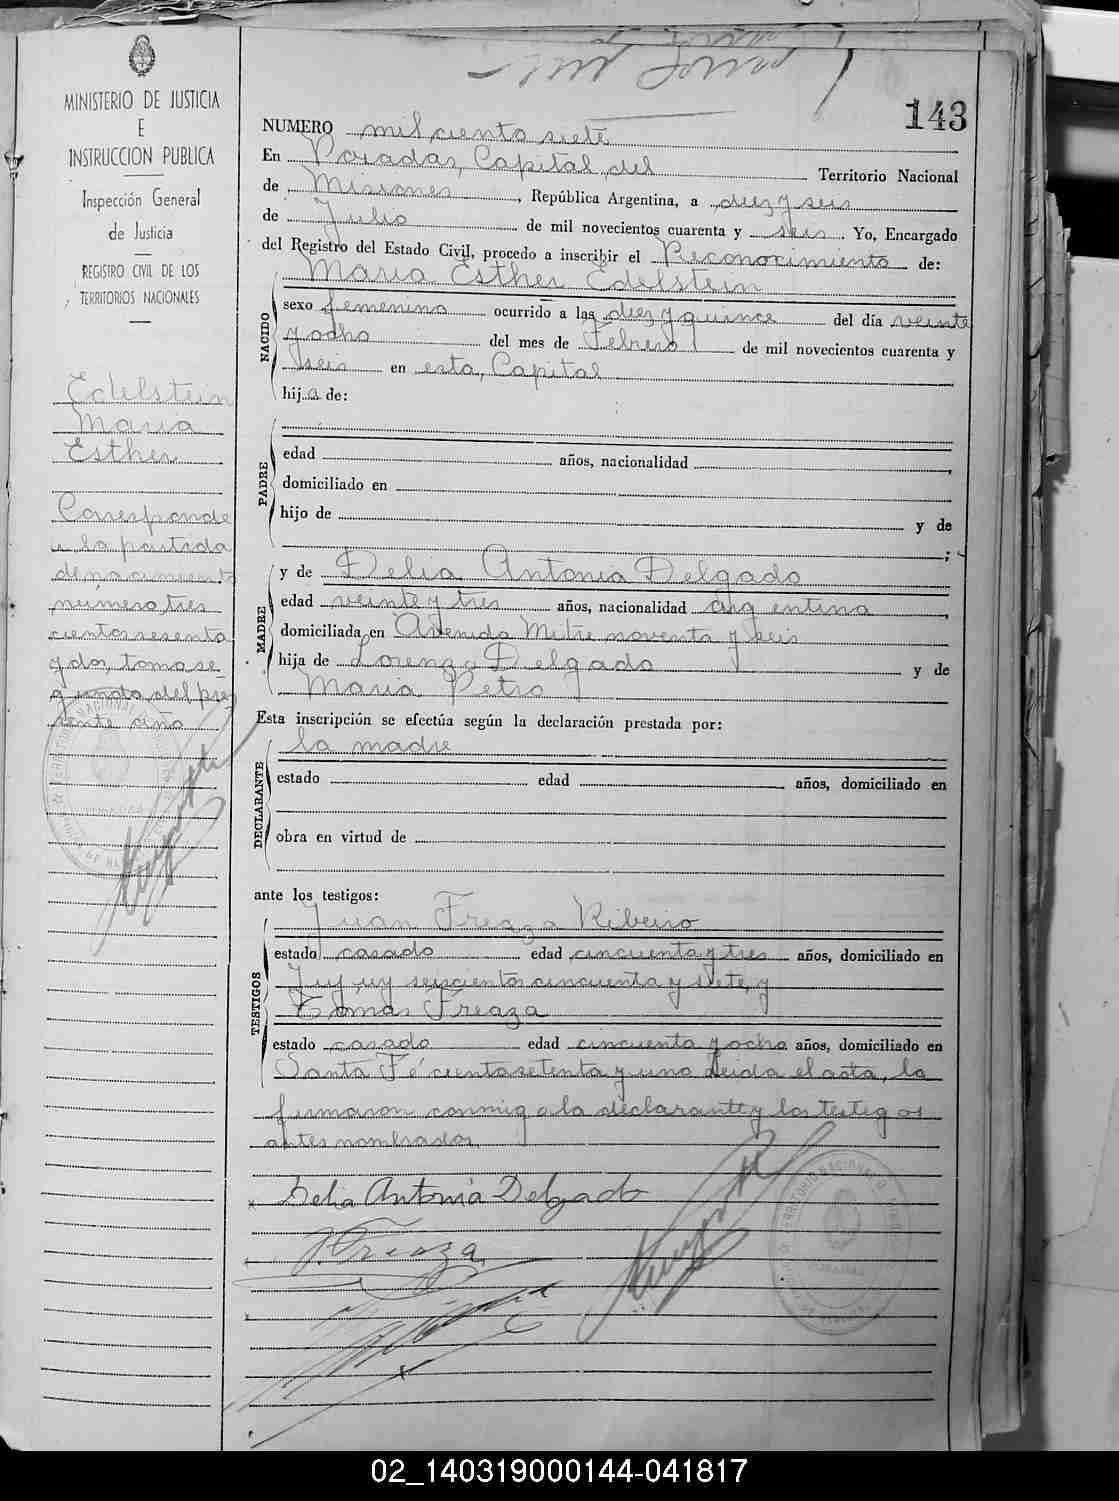 143
MINISTERIO DE JUSTICIA
E
INSTRUCCION PUBLICA
Inspección General
de Justicia
REGISTRO CIVIL DE LOS
TERRITORIOS NACIONALES
Edelstein
Maria
Esther
Corresponde
a la partida
de nacimiento
número tres
cientos sesenta
y dos, tomo se
gundo del pre
sente año
NUMERO mil ciento siete
En Posadas, Capital del Territorio Nacional
de Misiones, República Argentina, a diez y seis
de Julio de mil novecientos cuarenta y seis. Yo, Encargado
del Registro del Estado Civil, procedo a inscribir el Reconocimiento de:
NACIDO
Maria Esther Edelstein
sexo femenino ocurrido a las diez y quince del día veinte
y ocho del mes de Febrero de mil novecientos cuarenta y
seis en esta, Capital
hija de:
PADRE
edad años, nacionalidad ,
domiciliado en
hijo de y de
;
MADRE
y de Delia Antonia Delgado
edad veinte y tres años, nacionalidad argentina,
domiciliada en Avenida Mitre noventa y seis
hija de Lorenzo Delgado y de
Maria Petro
Esta inscripción se efectúa según la declaración prestada por:
DECLARANTE
la madre
estado edad años, domiciliado en
obra en virtud de
ante los testigos:
TESTIGOS
Juan Freaza Ribeiro
estado casado edad cincuenta y tres años, domiciliado en
Jujuy seiscientos cincuenta y siete, y
Tomas Freaza
estado casado edad cincuenta y ocho años, domiciliado en
Santa Fé ciento setenta y uno Leida el acta, la
firmaron conmigo la declarante y los testigos
antes nombrados.
Delia Antonia Delgado
J. Freaza
02_140319000144-041817